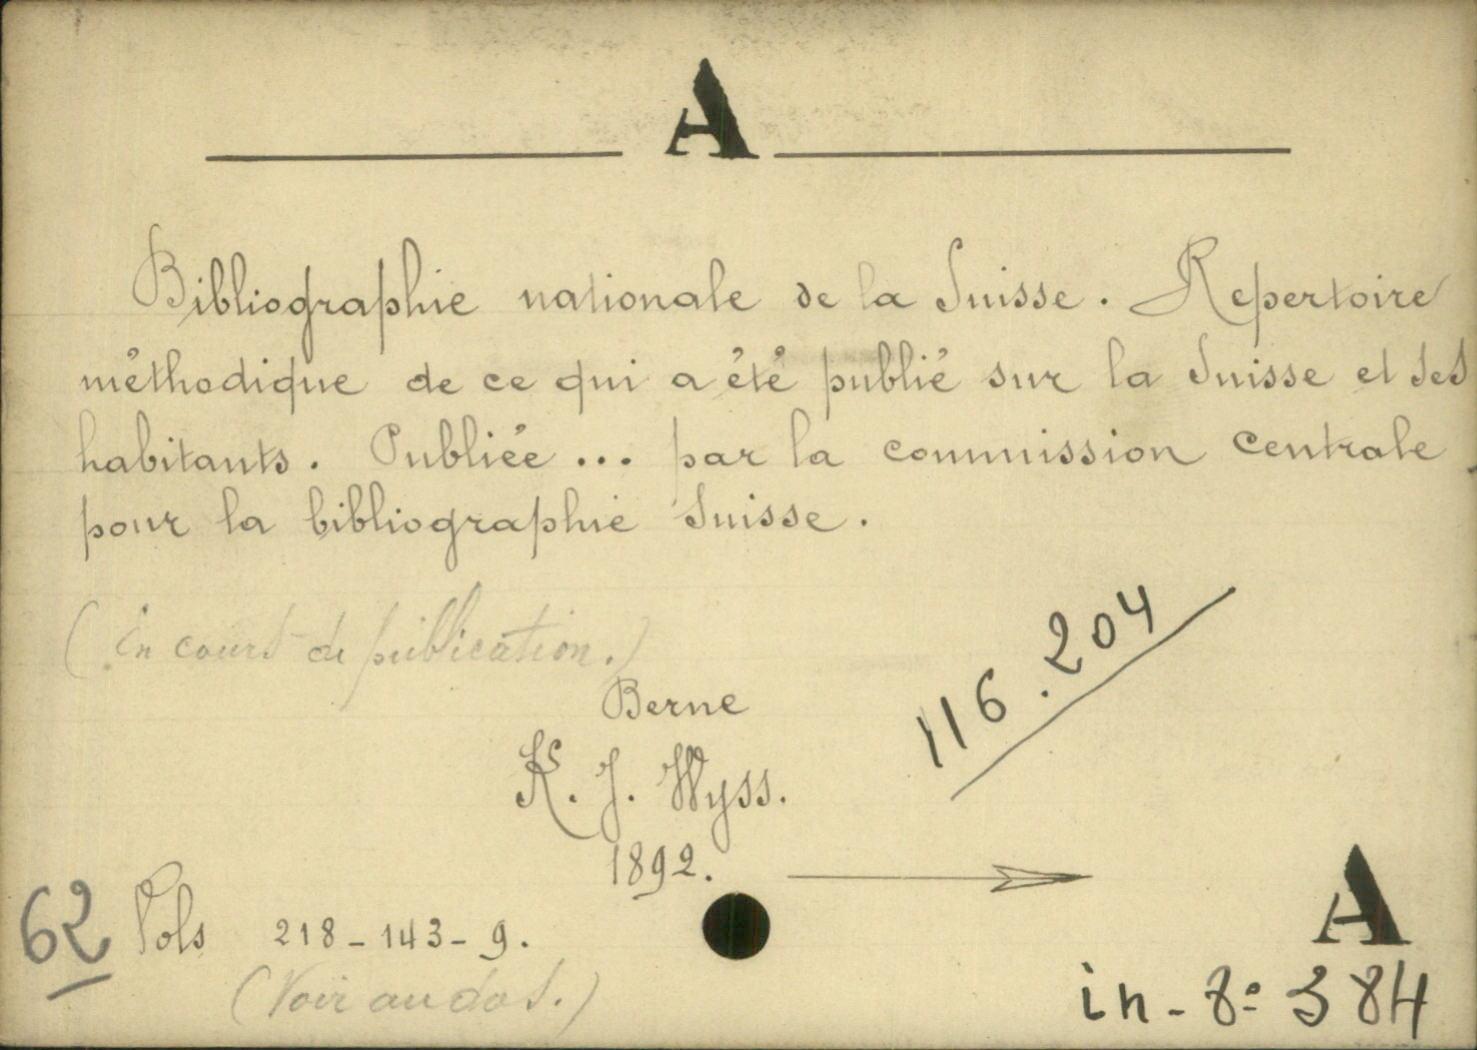 A
Bibliographie nationale de la Suisse. Repertoire
méthodique de ce qui a été publié sur la Suisse et ses
habitants. Publiée ... par la commission centrale
pour la bibliographie Suisse.
(En cours de publication.)
116.204
Berne
K. J. Wyss.
1892.
62 Vols 218-143-9.
(Voir au dos.)
A
in-8º 384